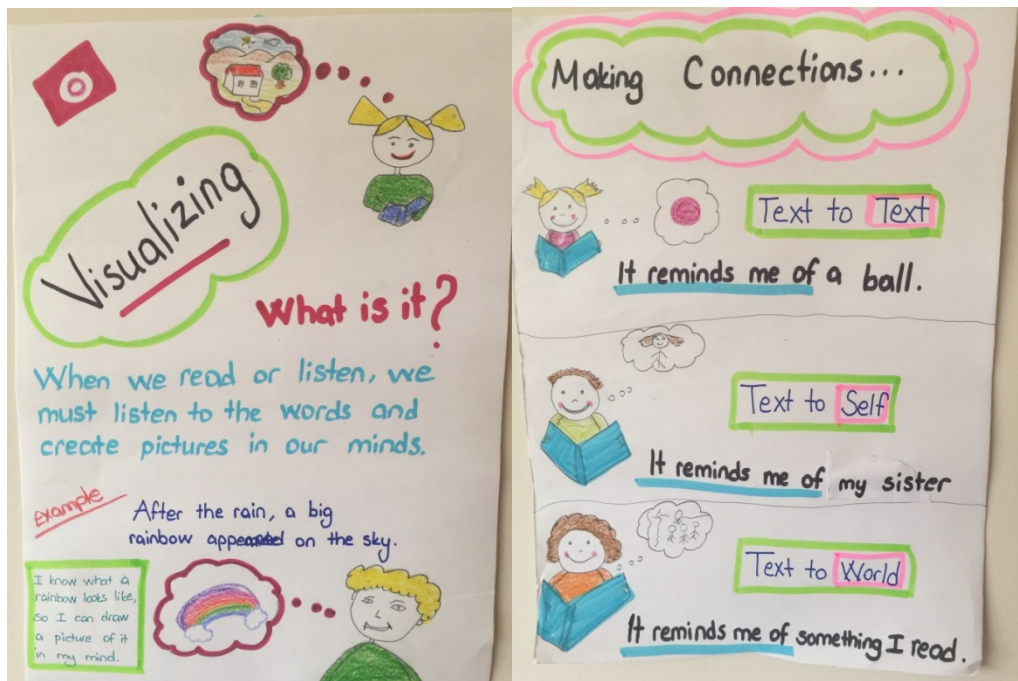 Visualizing
What is it?
When we read or listen, we
must listen to the words and
create pictures in our minds.
Example
After the rain, a big
rainbow appeared on the sky.
I know what a
rainbow looks like,
so I can draw
a picture of it
in my mind.
Making Connections...
Text to Text
It reminds me of a ball.
Text to Self
It reminds me of my sister
Text to World
It reminds me of something I read.